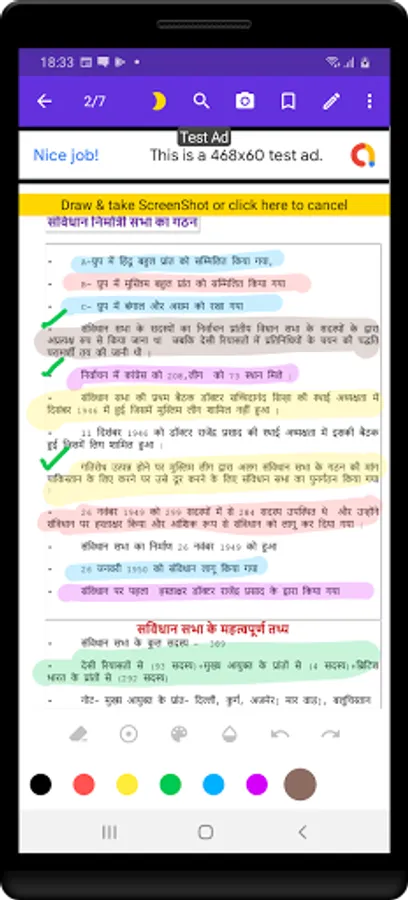 18:33
2/7
Test Ad
Nice job! This is a 468x60 test ad.
Draw & take ScreenShot or click here to cancel
संविधान निर्मात्री सभा का गठन
- A-ग्रुप में हिंदू बहुल प्रांत को सम्मिलित किया गया,
- B- ग्रुप में मुस्लिम बहुल प्रांत को सम्मिलित किया गया
- C- ग्रुप में बंगाल और असम को रखा गया
- संविधान सभा के सदस्यों का निर्वाचन प्रांतीय विधान सभा के सदस्यों के द्वारा
अप्रत्यक्ष रूप से किया जाना था जबकि देसी रियासतों में प्रतिनिधियों के चयन की पद्धति
परामर्श तय की जानी थी ।
- निर्वाचन में कांग्रेस को 208,लीग को 73 स्थान मिले ।
- संविधान सभा की प्रथम बैठक डॉक्टर सच्चिदानंद सिन्हा की स्थाई अध्यक्षता में
दिसंबर 1946 में हुई जिसमें मुस्लिम लीग शामिल नहीं हुआ ।
- 11 दिसंबर 1946 को डॉक्टर राजेंद्र प्रसाद की स्थाई अध्यक्षता में इसकी बैठक
हुई जिसमें लिग शामिल हुआ ।
- गतिरोध उत्पन्न होने पर मुस्लिम लीग द्वारा अलग संविधान सभा के गठन की मांग
पाकिस्तान के लिए करने पर उसे दूर करने के लिए संविधान सभा का पुनर्गठन किया गया
।
- 26 नवंबर 1949 को 299 सदस्यों में से 284 सदस्य उपस्थित थे और उन्होंने
संविधान पर हस्ताक्षर किया और आंशिक रूप से संविधान को लागू कर दिया गया ।
- संविधान सभा का निर्माण 26 नवंबर 1949 को हुआ
- 26 जनवरी 1950 को संविधान लागू किया गया
- संविधान पर पहला हस्ताक्षर डॉक्टर राजेंद्र प्रसाद के द्वारा किया गया
संविधान सभा के महत्वपूर्ण तथ्य
- संविधान सभा के कुल सदस्य - 389
- देसी रियासतों से (93 सदस्य)+मुख्य आयुक्त के प्रांतों से (4 सदस्य)+ब्रिटिश
भारत के प्रांतों से (292 सदस्य)
- नोट- मुख्य आयुक्त के प्रांत- दिल्ली, कुर्ग, अजमेर( मार वाड), बलूचिस्तान